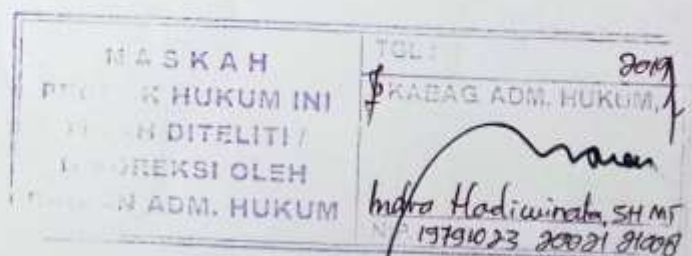 NASKAH
HUKUM INI
DITELITI /
OLEH
ADM. HUKUM
TGL :
2019
KABAG ADM. HUKUM,
Indra Hadiwinata, SH MT
19791023 20021 21008